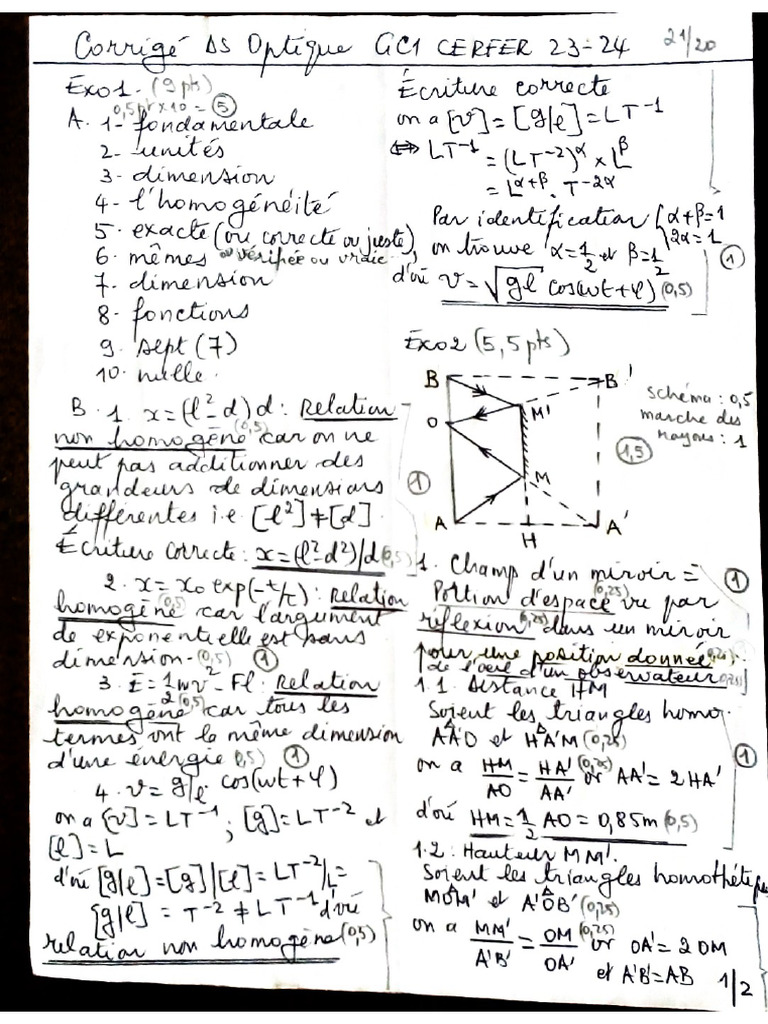 Corrigé DS Optique GC1 CERFER 23-24 21/20
Exo1- (9 pts)
0,5pt x 10 = 5
A. 1- fondamentale
2- unités
3- dimension
4- l'homogénéité
5- exacte (ou correcte ou juste),
6- mêmes ou vérifiée ou vraie
7- dimension
8- fonctions
9- sept (7)
10- nulle.
B. 1. x = (l² - d) d : Relation
non homogène (0,5) car on ne
peut pas additionner des
grandeurs de dimensions
différentes i.e [l²] ≠ [d]. 1
Écriture correcte : x = (l² - d²)/d (0,5)
2. x = x₀ exp(-t/τ) : Relation
homogène (0,5) car l'argument
de exponentielle est sans
dimension. (0,5) 1
3. E = 1/2 mv² - Fl : Relation
homogène (0,5) car tous les
termes ont la même dimension
d'une énergie (0,5) 1
4. v = g/l cos(ωt + φ)
on a [v] = LT⁻¹ ; [g] = LT⁻² et
[l] = L
d'où [g/l] = [g]/[l] = LT⁻²/L =
[g/l] = T⁻² ≠ LT⁻¹ d'où
relation non homogène (0,5)
Écriture correcte
on a [v] = [g/l] = LT⁻¹
⇔ LT⁻¹ = (LT⁻²)^α × L^β
= L^α+β . T^-2α
Par identification { α+β = 1
2α = 1
on trouve α = 1/2 et β = 1/2 1
d'où v = √gl cos(ωt + φ) (0,5)
Exo2 (5,5 pts)
B B'
M'
O
M
A H A'
Schéma : 0,5
marche des
rayons : 1
1,5
1. Champ d'un miroir = 1
Portion d'espace (0,25) vu par
réflexion (0,25) dans un miroir
pour une position donnée (0,25)
de l'oeil d'un observateur (0,25)
1.1. Distance HM
Soient les triangles homo.
AA'O et HA'M (0,25) 1
on a HM/AO = HA'/AA' (0,25) or AA' = 2HA'
d'où HM = 1/2 AO = 0,85m (0,5)
1.2 : Hauteur MM'.
Soient les triangles homothétiques
MOM' et A'OB' (0,25)
on a MM'/A'B' = OM/OA' (0,25) or OA' = 2OM
et A'B' = AB
1/2